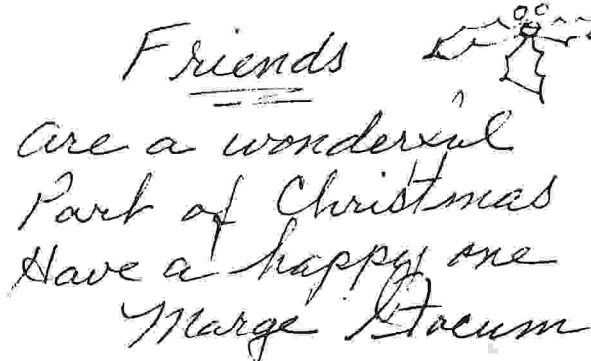 Friends
are a wonderful
Part of Christmas
Have a happy one
Marge